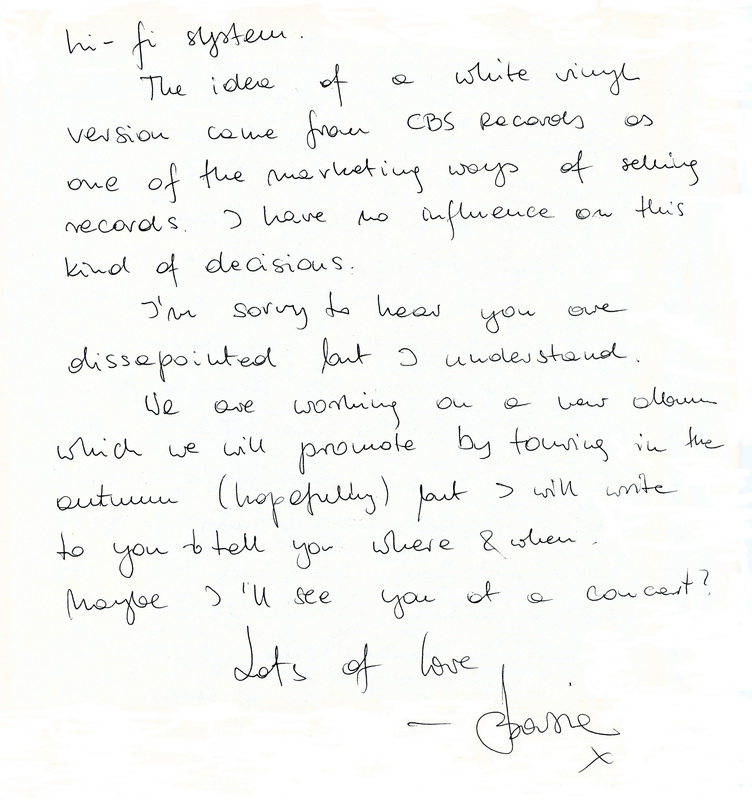 hi-fi system.
The idea of a white vinyl
version came from CBS Records as
one of the marketing ways of selling
records. I have no influence on this
kind of decisions.
I'm sorry to hear you are
dissapointed but I understand.
We are working on a new album
which we will promote by touring in the
autumn (hopefully) but I will write
to you to tell you where & when.
Maybe I'll see you at a concert?
Lots of love
— Basia
x